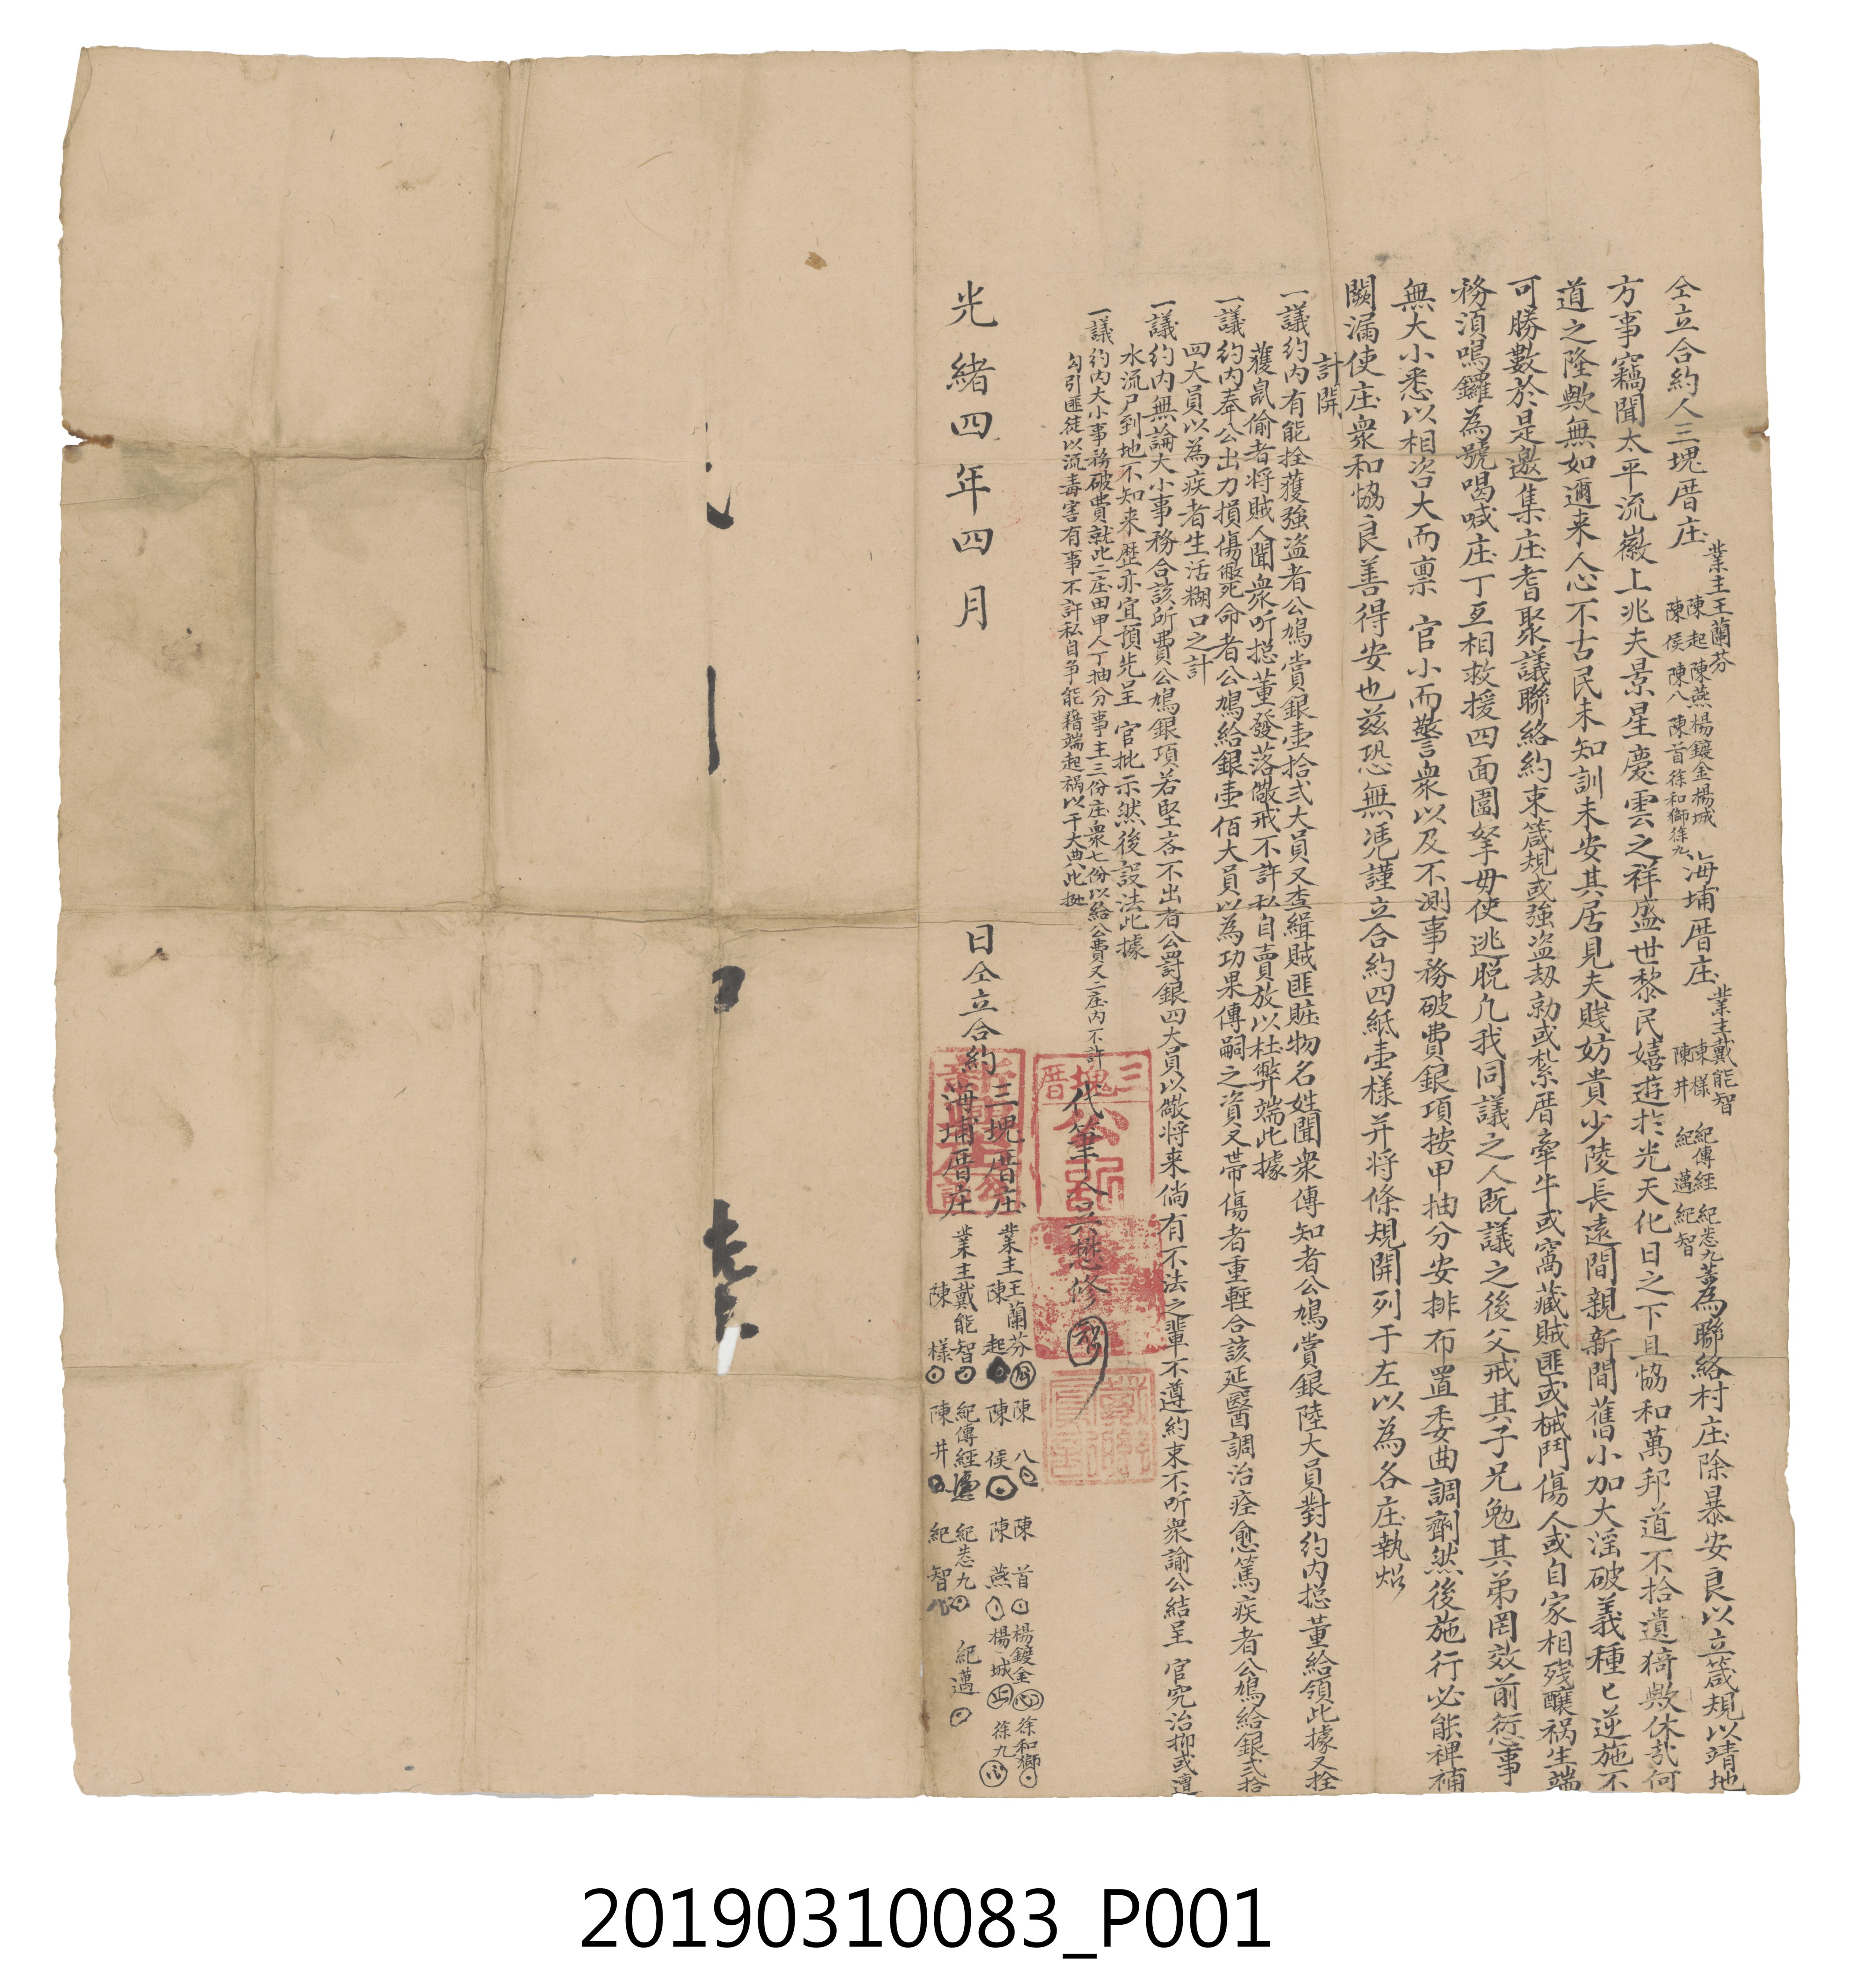 仝立合約人三塊厝庄業主王蘭芬陳起陳燕楊鍍金楊城陳侯陳八陳首徐和獅徐九海埔厝庄業主戴能智陳樣紀傳經紀恙九陳井紀邁紀智等為聯絡村庄除暴安良以立箴規以靖地
方事竊聞太平流徽上兆夫景星慶雲之祥盛世黎民嬉遊於光天化日之下且恊和萬邦道不拾遺猗歟休哉何
道之隆歟無如邇来人心不古民未知訓未安其居見夫賤妨貴少陵長遠間親新間舊小加大滛破義種乜逆施不
可勝數於是邀集庄耆聚議聯絡約束箴規或強盜刼勍或紮厝牽牛或窩藏賊匪或械鬥傷人或自家相殘釀禍生端
務湏鳴鑼為號喝喊庄丁互相救援四面圍拏毋使逃脱凢我同議之人既議之後父戒其子兄勉其弟罔效前愆事
無大小悉以相咨大而禀 官小而警衆以及不測事務破費銀項按甲抽分安排布置委曲調劑然後施行必能裨補
闕漏使庄衆和恊良善得安也兹恐無凴謹立合約四紙壹樣并将條規開列于左以為各庄執炤
計開
一議約内有能拴獲強盜者公鳩賞銀壹拾弍大員又查緝賊匪賍物名姓聞衆傳知者公鳩賞銀陸大員對約内捴董給領此據又拴
獲鼠偷者将賊人聞衆听捴董發落儆戒不許私自賣放以杜弊端此據
一議約内奉公出力損傷斃命者公鳩給銀壹佰大員以為功果傳嗣之資又帶傷者重輕合該延醫調治痊愈篤疾者公鳩給銀弍拾
四大員以為疾者生活糊口之計
一議約内無論大小事務合該所費公鳩銀項若堅吝不出者公罰銀四大員以儆将来倘有不法之輩不遵約束不听衆諭公結呈 官究治抑或遭
水流尸到地不知来歷亦宜預先呈 官批示然後設法此據
一議約内大小事務破費就此二庄田甲人丁抽分事主三份庄衆七份以給公費又二庄内不許
勾引匪徒以流毒害有事不許私自争能藉端起禍以干大典此據
代筆合興懋修
三塊厝公記
光緒四年四月 日仝立合約
三塊厝庄業主王蘭芬陳起陳八陳侯陳首陳燕楊鍍金楊城徐和獅徐九
海埔厝庄業主戴能智陳樣紀傳經陳井紀恙九紀智紀邁
20190310083_P001